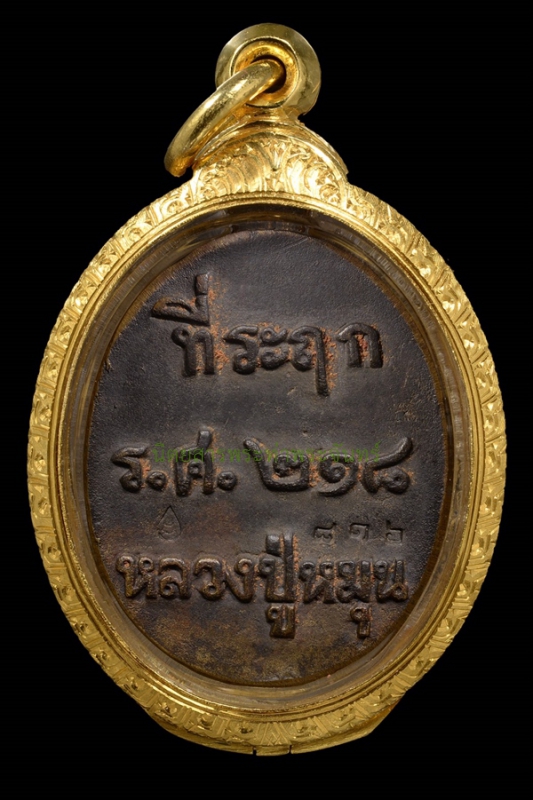 ที่ระฤก
ร.ศ. ๒๑๘
๘๑๖
หลวงปู่หมุน